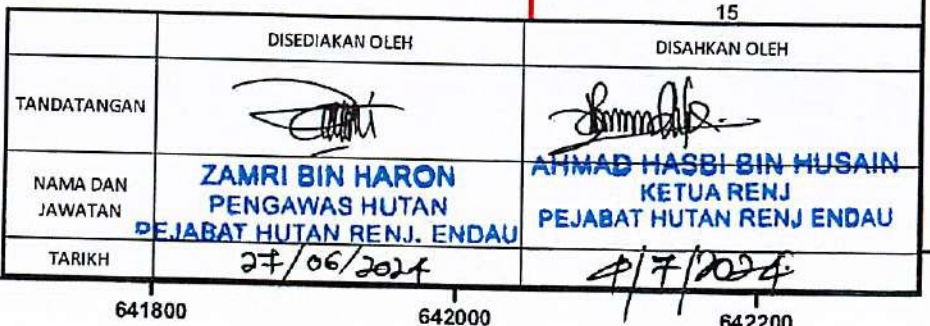 15
DISEDIAKAN OLEH
DISAHKAN OLEH
TANDATANGAN
NAMA DAN JAWATAN
ZAMRI BIN HARON
PENGAWAS HUTAN
PEJABAT HUTAN RENJ. ENDAU
AHMAD HASBI BIN HUSAIN
KETUA RENJ
PEJABAT HUTAN RENJ ENDAU
TARIKH
27/06/2024
4/7/2024
641800
642000
642200